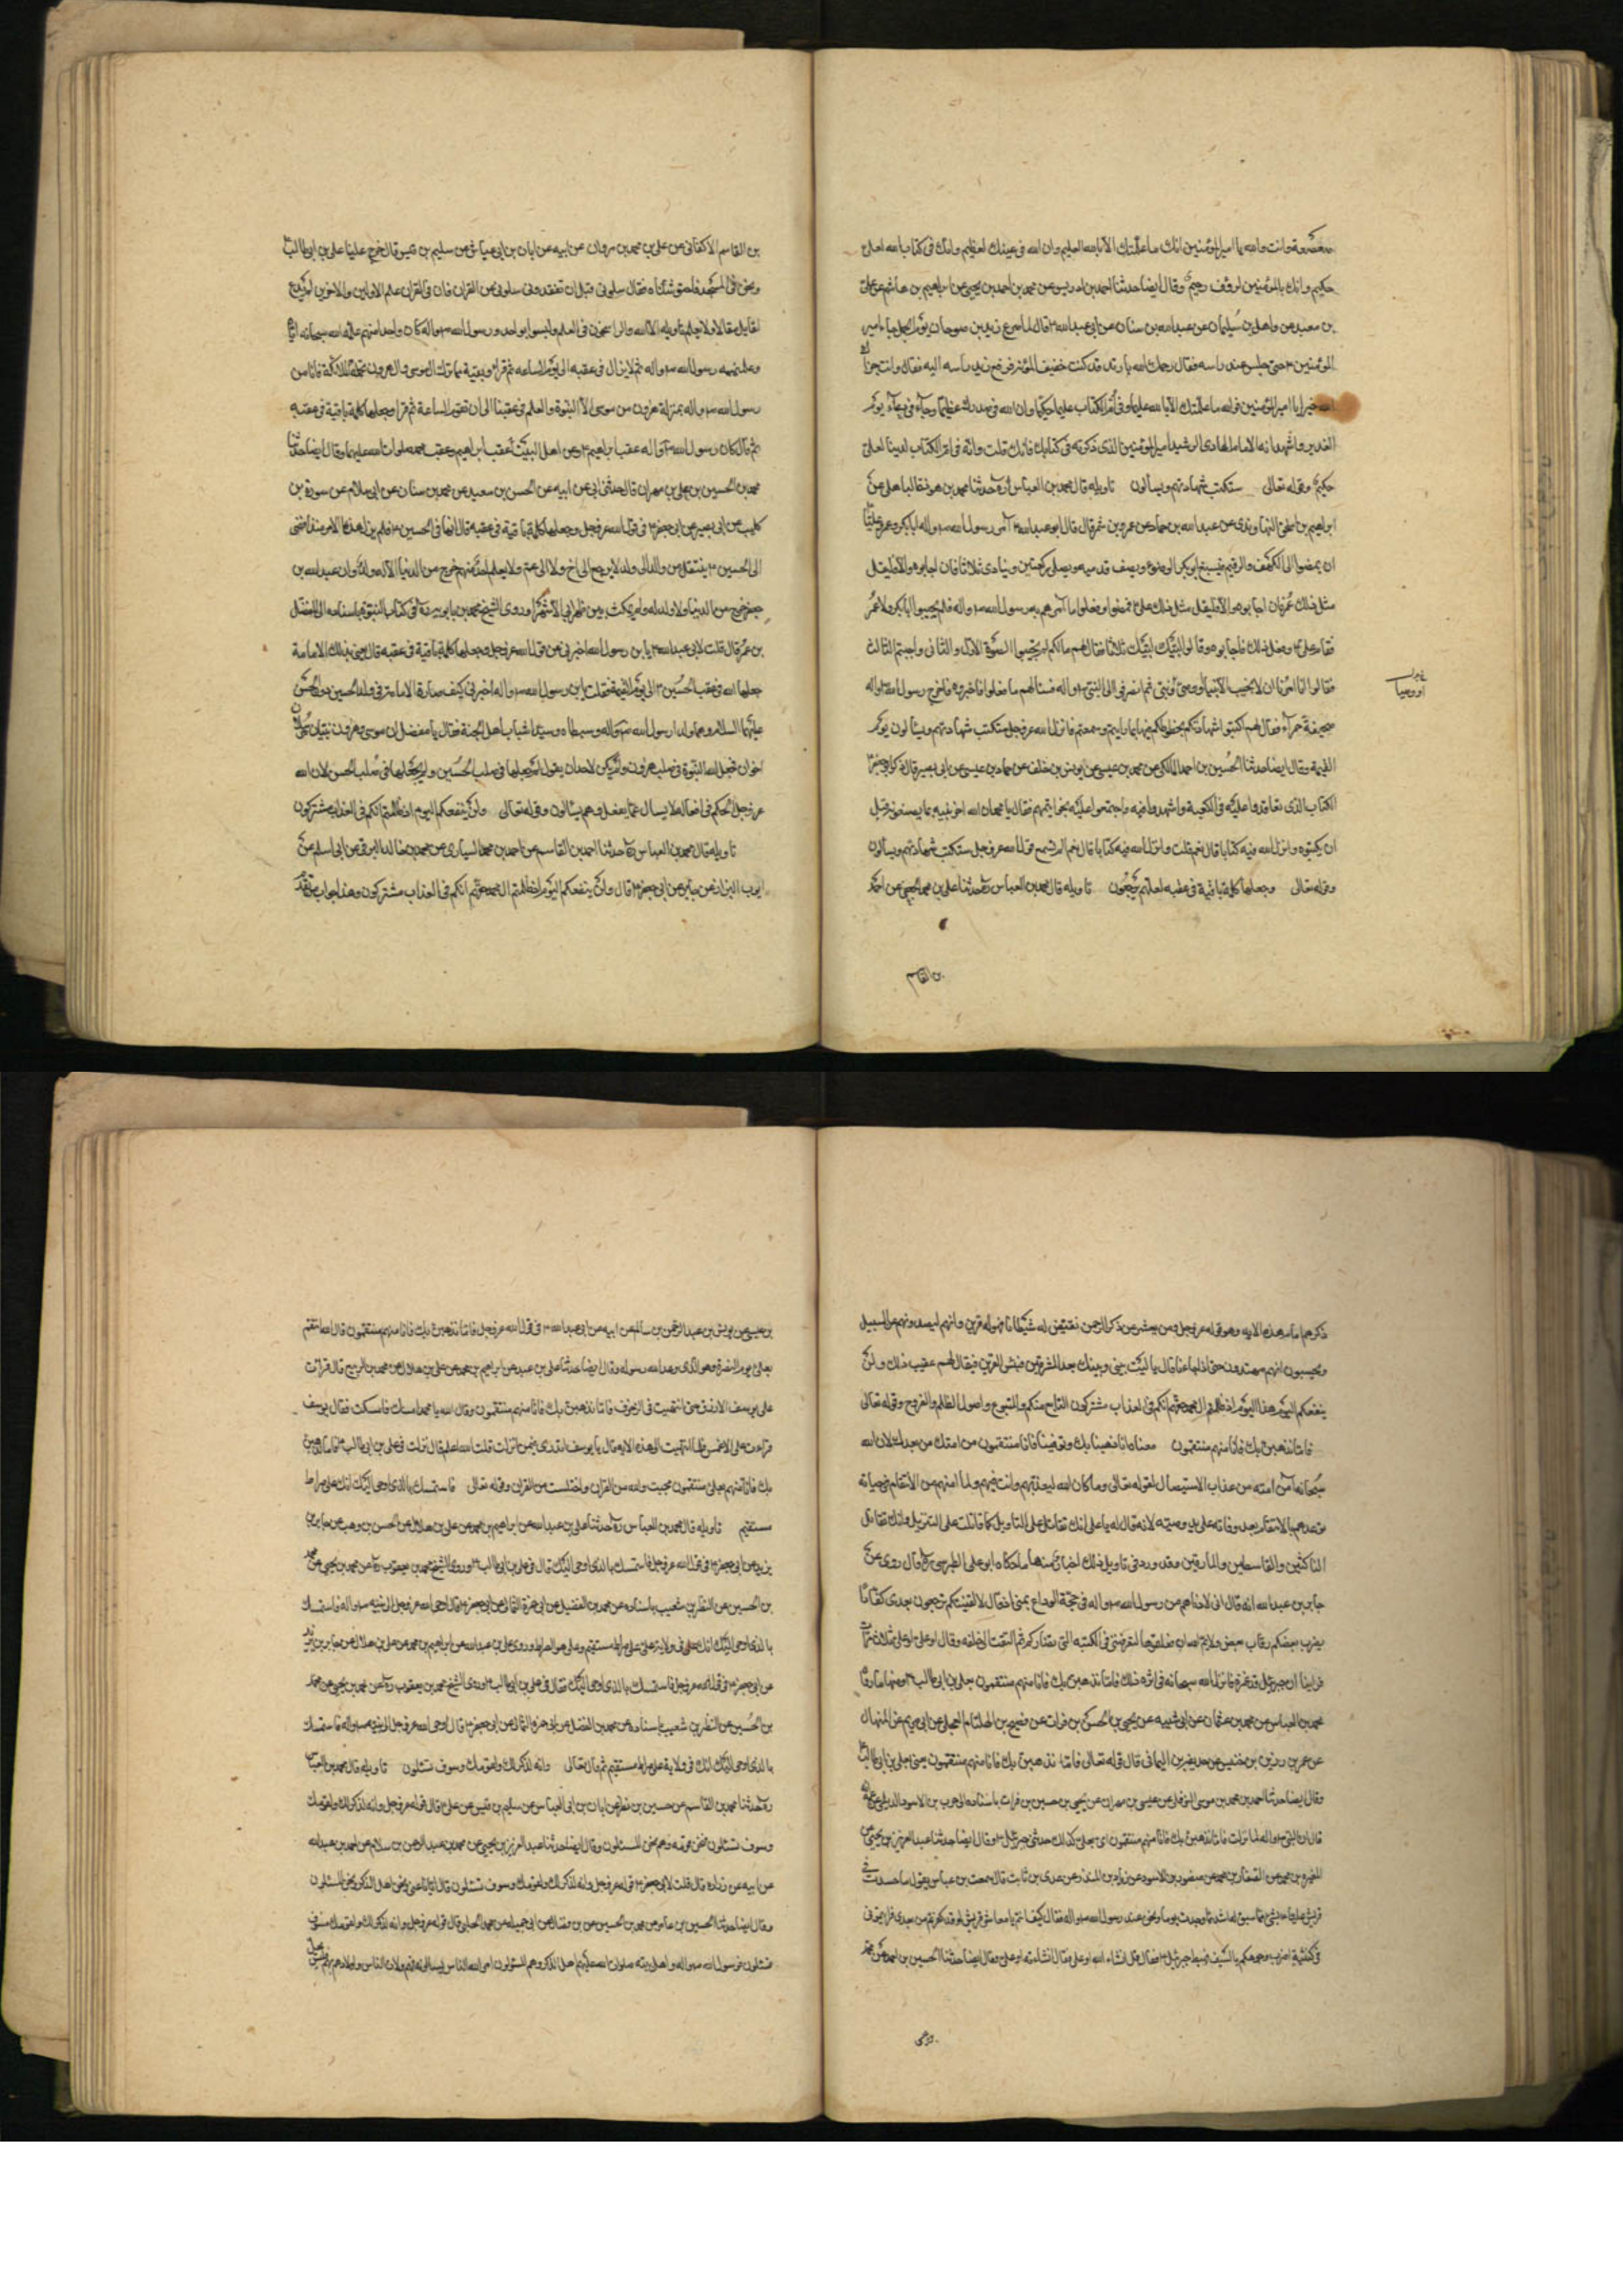 صعصعة وانت والله يا امير المؤمنين انك ما علمتك الا بالله العليم وان الله في عينك لعظيم وانك في كتاب الله لعلى
حكيم وانك بالمؤمنين لرؤف رحيم وقال ايضا حدثنا احمد بن ادريس عن محمد بن احمد بن يحيى عن ابراهيم بن هاشم عن على
بن معبد عن واصل بن سليمان عن عبدالله بن سنان عن ابى عبدالله ع قال لما صرع زيد بن صوحان يوم الجمل جاء امير
المؤمنين ع حتى جلس عند راسه فقال رحمك الله يا زيد قد كنت خفيف المؤنة فرفع زيد راسه اليه فقال وانت جزاك
الله خيرا يا امير المؤمنين فوالله ما علمتك الا بالله عليما وفى ام الكتاب عليا حكيما وان الله في صدرك عظيما وجاء في دعاء يوم
الغدير واشهد انه الامام الهادى الرشيد امير المؤمنين الذى ذكرته في كتابك فانك قلت وانه في ام الكتاب لدينا لعلى
حكيم وقوله تعالى ستكتب شهادتهم ويسألون تاويله قال محمد بن العباس ره حدثنا احمد بن هوذة الباهلى عن
ابراهيم بن اسحق النهاوندى عن عبدالله بن حماد عن عمرو بن شمر قال قال ابو عبدالله ع امر رسول الله ص واله ابا بكر وعمر وعليا
ان يمضوا الى الكهف والرقيم فيسبغ ابو بكر الوضوء ويصف قدميه ويصلى ركعتين وينادى ثلاثا فان اجابوه والا فليقل
مثل ذلك عمر فان اجابوه والا فليقل مثل ذلك على ع فمضوا وفعلوا ما امرهم به رسول الله ص واله فلم يجيبوا ابا بكر ولا عمر
فقام على ع وفعل ذلك فاجابوه وقالوا لبيك لبيك ثلاثا فقال لهم ما لكم لم تجيبوا الصوت الاول والثانى واجبتم الثالث
فقالوا انا امرنا ان لا نجيب الا نبيا او وصى نبى ثم انصرفوا الى النبى ص واله فسئلهم ما فعلوا فاخبروه فاخرج رسول الله ص واله
صحيفة حمراء فقال لهم اكتبوا شهادتكم بخطوطكم فيها بما رايتم وسمعتم فانزل الله عز وجل ستكتب شهادتهم ويسألون يوم
القيمة وقال ايضا حدثنا الحسين بن احمد المالكى عن محمد بن عيسى عن يونس بن خلف عن حماد بن عيسى عن ابى بصير قال ذكر ابو جعفر ع
الكتاب الذى تعاقدوا عليه في الكعبة واشهدوا فيه واختموا عليه بخواتيمهم فقال يا محمد ان الله اخبر نبيه بما يصنعونه قبل
ان يكتبوه وانزل الله فيه كتابا قلت وانزل الله فيه كتابا قال نعم الم تسمع قول الله عز وجل ستكتب شهادتهم ويسألون
وقوله تعالى وجعلها كلمة باقية في عقبه لعلهم يرجعون تاويله قال محمد بن العباس ره حدثنا على بن محمد الجعفى عن احمد
بن القاسم
بن القاسم الاكفانى عن على بن محمد بن مروان عن ابيه عن ابان بن ابى عياش عن سليم بن قيس قال خرج علينا على بن ابى طالب ع
ونحن في المسجد فاحتوشناه فقال سلونى قبل ان تفقدونى سلونى عن القران فان في القران علم الاولين والاخرين لم يدع
لقايل مقالا ولا يعلم تاويله الا الله والراسخون في العلم وليسوا بواحد ورسول الله ص واله كان واحدا منهم علمه الله سبحانه اياه
وعلمنيه رسول الله ص واله ثم لا يزال في عقبه الى يوم الساعة ثم قرا وبقية مما ترك ال موسى وال هرون تحمله الملائكة فانا من
رسول الله ص واله بمنزلة هرون من موسى الا النبوة والعلم في عقبنا الى ان تقوم الساعة ثم قرا وجعلها كلمة باقية في عقبه
ثم قال كان رسول الله ص واله عقب ابراهيم ع ونحن اهل البيت عقب ابراهيم وعقب محمد صلوات الله عليهما وقال ايضا حدثنا
محمد بن الحسين بن على بن مهزيار قال حدثنى ابى عن ابيه عن الحسن بن سعيد عن محمد بن سنان عن ابى سلام عن سورة بن
كليب عن ابى بصير عن ابى جعفر ع في قول الله عز وجل وجعلها كلمة باقية في عقبه قال انها في الحسين ع فلم يزل هذا الامر منذ افضى
الى الحسين ع ينتقل من والد الى ولد لا يرجع الى اخ ولا الى عم ولا يعلم احد منهم خرج من الدنيا الا وله ولد وان عبدالله بن
جعفر خرج من الدنيا ولا ولد له ولم يمكث بين ظهرانى اصحابه الا شهرا وروى الشيخ محمد بن بابويه ره في كتاب النبوة باسناده الى المفضل
بن عمر قال قلت لابى عبدالله ع يا بن رسول الله اخبرنى عن قول الله عز وجل وجعلها كلمة باقية في عقبه قال يعنى بذلك الامامة
جعلها الله في عقب الحسين ع الى يوم القيمة فقلت يا بن رسول الله ص واله اخبرنى كيف صارت الامامة في ولد الحسين دون الحسن
عليهما السلام وهما ولدا رسول الله ص واله وسبطاه وسيدا شباب اهل الجنة فقال يا مفضل ان موسى وهرون نبيان مرسلان
اخوان فجعل الله النبوة في صلب هرون ولم يكن لاحد ان يقول لم جعلها في صلب الحسين ولم يجعلها في صلب الحسن لان الله
عز وجل الحكيم في افعاله لا يسأل عما يفعل وهم يسألون وقوله تعالى ولن ينفعكم اليوم اذ ظلمتم انكم في العذاب مشتركون
تاويله قال محمد بن العباس ره حدثنا احمد بن القاسم عن احمد بن محمد السيارى عن محمد بن خالد البرقى عن ابى اسلم عن
ايوب البزاز عن جابر عن ابى جعفر ع قال ولن ينفعكم اليوم اذ ظلمتم ال محمد حقهم انكم في العذاب مشتركون وهذا جواب لمن تقدم
ذكرهم امام هذه الاية وهو قوله عز وجل ومن يعش عن ذكر الرحمن نقيض له شيطانا فهو له قرين وانهم ليصدونهم عن السبيل
ويحسبون انهم مهتدون حتى اذا جاءنا قال يا ليت بينى وبينك بعد المشرقين فبئس القرين فيقال لهم عقيب ذلك ولن
ينفعكم اليوم هذا اليوم اذ ظلمتم ال محمد حقهم انكم في العذاب مشتركون التابع منكم والمتبوع واصول الظلم والفروع وقوله تعالى
فاما نذهبن بك فانا منهم منتقمون معناه فاما نذهبن بك ونتوفينك فانا منتقمون من امتك من بعدك لان الله
سبحانه امن امته من عذاب الاستيصال لقوله تعالى وما كان الله ليعذبهم وانت فيهم ولما امنهم من الانتقام في حياته
توعدهم بالانتقام بعد وفاته على يد وصيه لانه قال له يا على انك تقاتل على التاويل كما قاتلت على التنزيل وانك تقاتل
الناكثين والقاسطين والمارقين وقد ورد في تاويل ذلك اخبار منها ما حكاه ابو على الطبرسى ره قال روى عن
جابر بن عبدالله انه قال انى لادناهم من رسول الله ص واله في حجة الوداع بمنى اذ قال لا الفينكم ترجعون بعدى كفارا
يضرب بعضكم رقاب بعض وايم الله لئن فعلتموها لتعرفننى في الكتيبة التى تضاربكم ثم التفت الى خلفه وقال او على او على ثلاث مرات
فراينا ان جبرئيل قد غمزه فانزل الله سبحانه في اثر ذلك فاما نذهبن بك فانا منهم منتقمون بعلى بن ابى طالب ع ومنها ما رواه
محمد بن العباس عن محمد بن عثمان عن ابى شيبه عن يحيى بن الحسن بن فرات عن مصبح بن الهلقام العجلى عن ابى مريم عن المنهال
بن عمرو عن زر بن حبيش عن حذيفة بن اليمانى قال قوله تعالى فاما نذهبن بك فانا منهم منتقمون يعنى بعلى بن ابى طالب ع
وقال ايضا حدثنا احمد بن محمد بن موسى النوفلى عن عيسى بن مهران عن يحيى بن حسن بن فرات باسناده الى حرب بن الاسود الدئلى عن عمه
قال ان النبى ص واله لما نزلت فاما نذهبن بك فانا منهم منتقمون اى بعلى كذلك حدثنى جبرئيل ع وقال ايضا حدثنا عبدالعزيز بن يحيى عن
المغيرة بن محمد عن عبدالغفار بن محمد عن منصور بن الاسود عن زياد بن المنذر عن عدى بن ثابت قال سمعت بن عباس يقول ما حسدت
قريش عليا ع بشئ مما سبق له اشد مما وجدت يوما ونحن عند رسول الله ص واله فقال كيف انتم يا معاشر قريش لو قد كفرتم من بعدى فرايتمونى
في كتيبة اضرب وجوهكم بالسيف فهبط جبرئيل ع فقال قل ان شاء الله او على فقال ان شاء الله او على وقال ايضا حدثنا الحسين بن احمد عن محمد
بن عيسى
بن عيسى عن يونس بن عبدالرحمن بن سالم عن ابيه عن ابى عبدالله ع في قول الله عز وجل فاما نذهبن بك فانا منهم منتقمون قال الله انتقم
بعلى ع يوم البصرة وهو الذى وعد الله رسوله وقال ايضا حدثنا على بن عبدالله عن ابراهيم بن محمد عن على بن هلال عن محمد بن الربيع قال قرات
على يوسف الازرق حتى انتهيت في الزخرف فاما نذهبن بك فانا منهم منتقمون وقال الله يا محمد امسك فامسكت فقال يوسف
قرات على الاعمش فلما انتهيت الى هذه الاية قال يا يوسف اتدرى فيمن انزلت قلت الله اعلم قال نزلت في على بن ابى طالب ع فاما نذهبن
بك فانا منهم بعلى منتقمون محيت والله من القران واختلست من القران وقوله تعالى فاستمسك بالذى اوحى اليك انك على صراط
مستقيم تاويله قال محمد بن العباس ره حدثنا على بن عبدالله عن ابراهيم بن محمد عن على بن هلال عن الحسن بن وهب عن جابر بن
يزيد عن ابى جعفر ع في قول الله عز وجل فاستمسك بالذى اوحى اليك قال في على بن ابى طالب ع وروى الشيخ محمد بن يعقوب ره عن محمد بن يحيى عن محمد
بن الحسين عن النظر بن شعيب باسناده عن محمد بن الفضيل عن ابى حمزة الثمالى عن ابى جعفر ع قال اوحى الله عز وجل الى نبيه ص واله فاستمسك
بالذى اوحى اليك انك على ولاية على وعلى هو الصراط وروى على بن عبدالله عن ابراهيم بن محمد عن على بن هلال عن جابر بن يزيد
عن ابى جعفر ع في قول الله عز وجل فاستمسك بالذى اوحى اليك فقال في على بن ابى طالب ع وروى الشيخ محمد بن يعقوب ره عن محمد بن يحيى عن محمد
بن الحسين عن النظر بن شعيب باسناده عن محمد بن الفضيل عن ابى حمزه الثمالى عن ابى جعفر ع قال اوحى الله عز وجل الى نبيه ص واله فاستمسك
بالذى اوحى اليك انك في ولاية على صراط مستقيم ثم قال تعالى وانه لذكر لك ولقومك وسوف تسئلون تاويله قال محمد بن العباس
ره حدثنا محمد بن القاسم عن حسين بن نصر عن ابان بن ابى العياش عن سليم بن قيس عن على ع قال قوله عز وجل وانه لذكر لك ولقومك
وسوف تسئلون فنحن قومه ونحن المسئلون وقال ايضا حدثنا عبدالعزيز بن يحيى عن محمد بن عبدالرحمن بن سلام عن احمد بن عبدالله
عن ابيه عن زراره قال قلت لابى جعفر ع قوله عز وجل وانه لذكر لك ولقومك وسوف تسئلون قال ايانا عنى ونحن اهل الذكر ونحن المسئلون
وقال ايضا حدثنا الحسين بن عامر عن محمد بن الحسين عن بن فضال عن ابى جميله عن محمد الحلبى قال قوله عز وجل وانه لذكر لك ولقومك وسوف
تسئلون فرسول الله ص واله واهل بيته صلوات الله عليهم اهل الذكر وهم المسئولون امر الله الناس ان يسألوهم فهم ولاة الناس واولاهم بهم